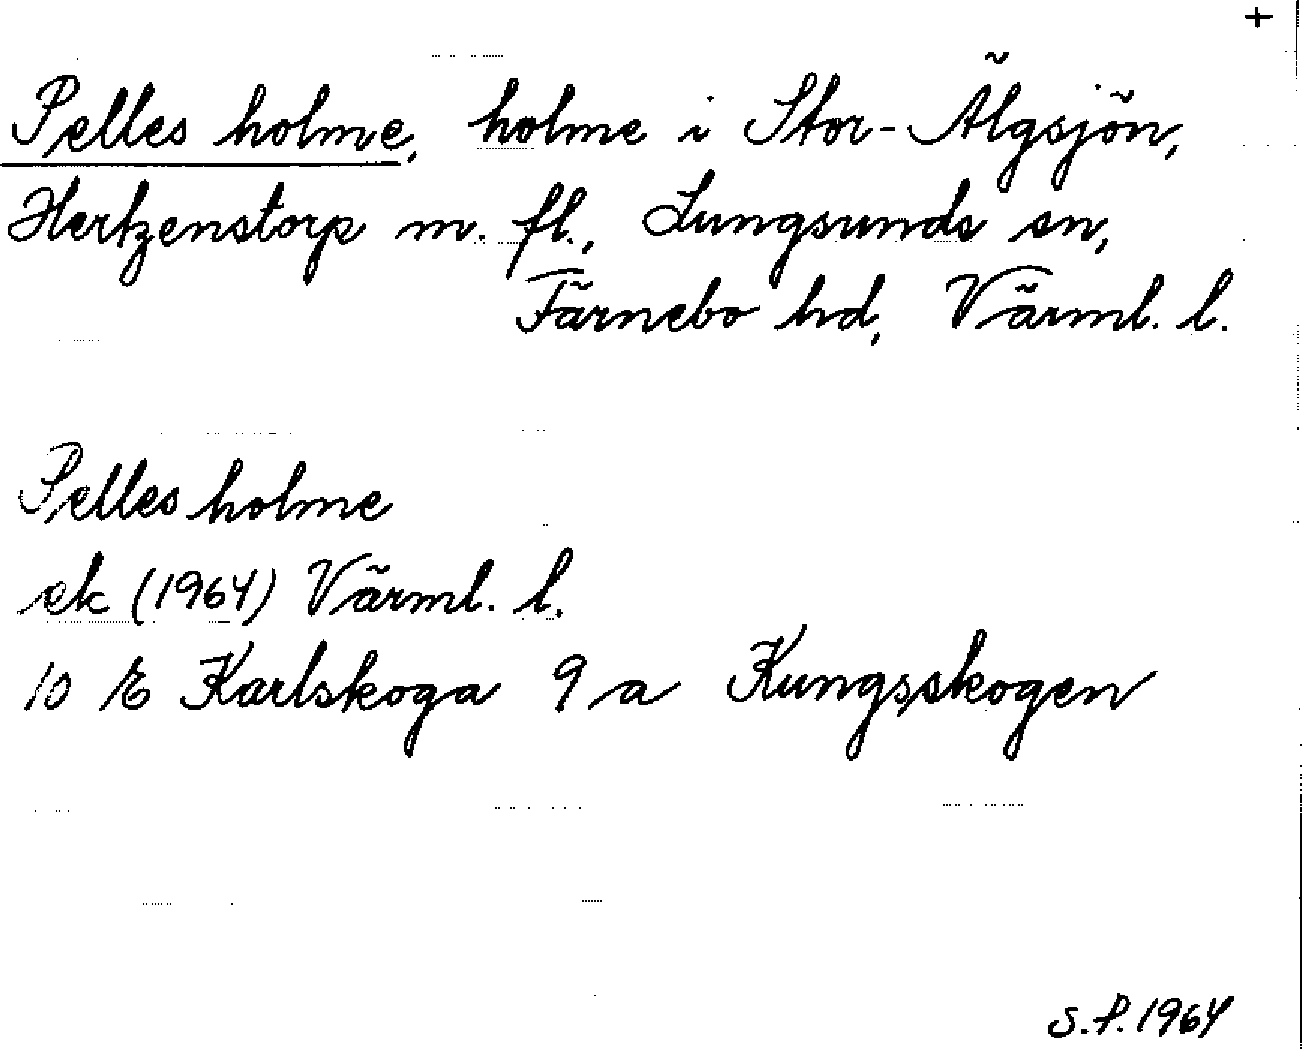 +
Pelles holme, holme i Stor-Älgsjön,
Hertzenstorp m. fl., Lungsunds sn,
Färnebo hd, Värml. l.
Pelles holme
ek (1964) Värml. l.
10 E Karlskoga 9 a Kungsskogen
S.P. 1964